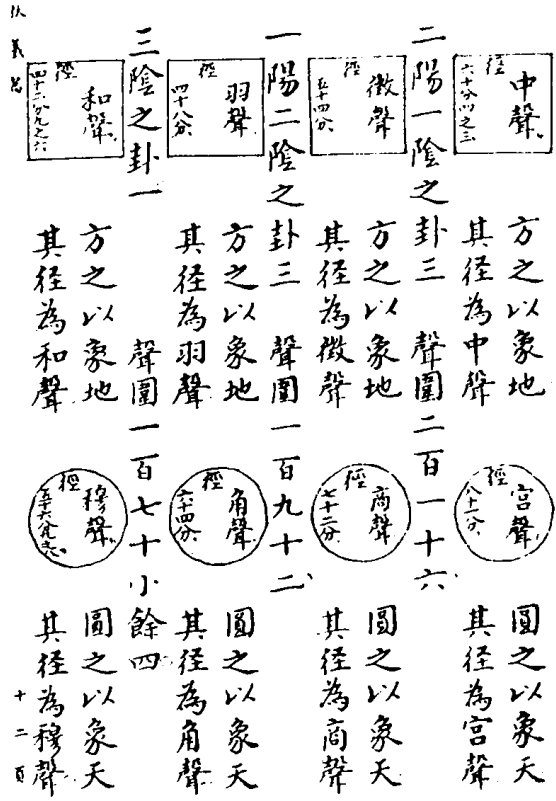 中聲
徑
六十分四之三
方之以象地
其径為中聲
宮聲
徑
八十一分
圓之以象天
其径為宮聲
二陽一陰之卦三 聲圍二百一十六
徵聲
徑
五十四分
方之以象地
其径為徵聲
商聲
徑
七十二分
圓之以象天
其径為商聲
一陽二陰之卦三 聲圍一百九十二
羽聲
徑
四十八分
方之以象地
其径為羽聲
角聲
徑
六十四分
圓之以象天
其径為角聲
三陰之卦一 聲圍一百七十小餘四
和聲
徑
四十二分九之六
方之以象地
其径為和聲
穆聲
徑
圓之以象天
其径為穆聲
十二頁